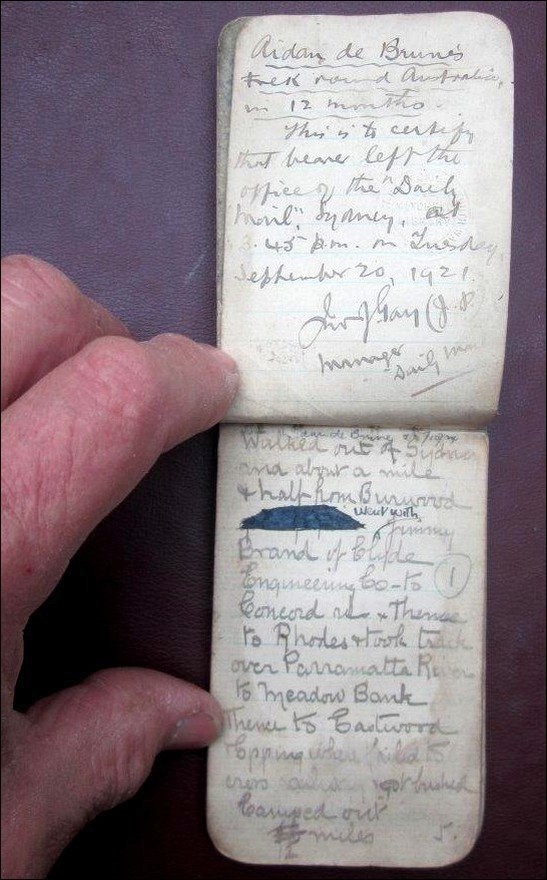 Aidan de Brune's
trek round Australia,
in 12 months.
This is to certify
that bearer left the
office of the "Daily
Mail", Sydney, at
3.45 p.m. on Tuesday
September 20, 1921
Manager "Daily Mail
Walked out of Sydney
and about a mile
& half from Burwood
went with
Jimmy
Brand of Clyde
Engineering Co to
Concord & Thence
to Rhodes & took track
over Parramatta River
to Meadow Bank
Thence to Eastwood
Epping where failed to
cross railway got bushed
Camped out
miles 5.
12
1